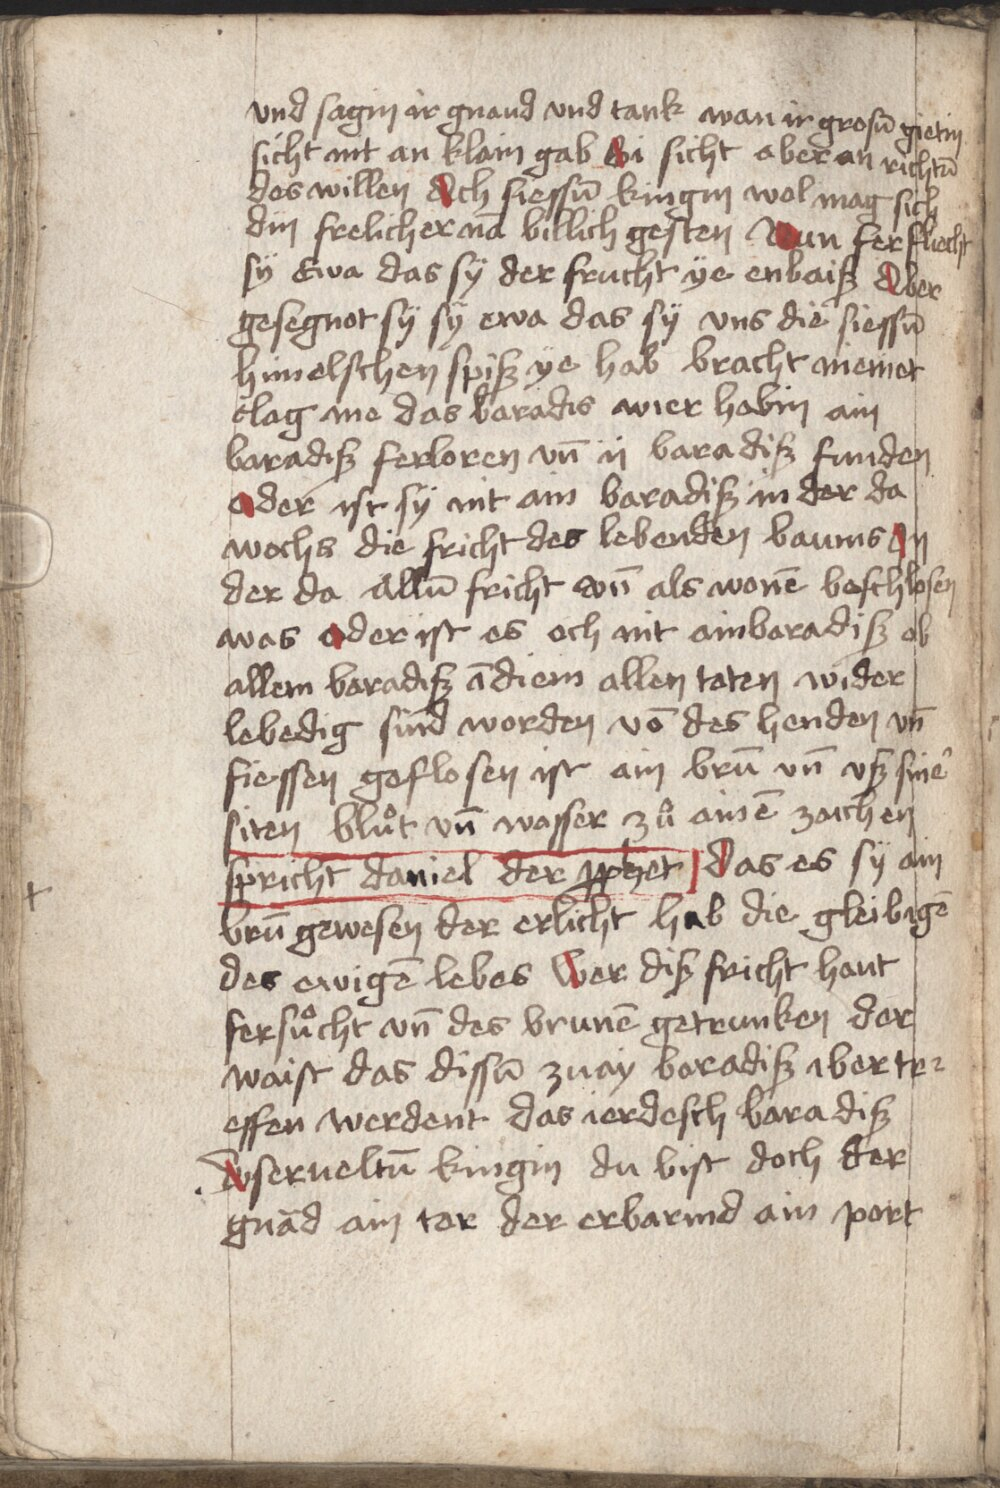 und sagin ir gnaud und tank wan ir grosū gietin
sicht nit an klain gab Si sicht aber an richtū
des willen Ach siessū kingin wol mag sich
din frelicher nā billich gesten Nun ferfliecht
sÿ Ewa das sÿ der frucht ÿe enbaiß Aber
gesegnot sÿ sÿ ewa das sÿ uns die siessū
himelschen spiß ÿe hab bracht niemet
clag me das baradis wier habin ain
baradiß ferloren un̄ ij baradiß funden
oder ist sÿ nit ain baradiß in der da
wochs die fricht des lebenden baums In
der da Allū fricht un̄ als wonē beschlosen
was oder ist es och nit ain baradiß ob
allem baradiß ā diem allen toten wider
lebedig sind worden vō des henden un̄
fiessen geflosen ist ain brū un̄ uß sinē
siten blůt un̄ wasser zů ainē zaichen
spricht daniel der pphet das es sÿ ain
brū gewesen der erlicht hab die gleibigē
des ewigē lebes Wer diß fricht haut
fersůcht un̄ des brunē getrunken der
waist das dissū zuaÿ baradiß iber tr
effen werdent das ierdesch baradiß
Userueltū kingin du bist doch der
gnād ain tor der erbarmd ain port
+